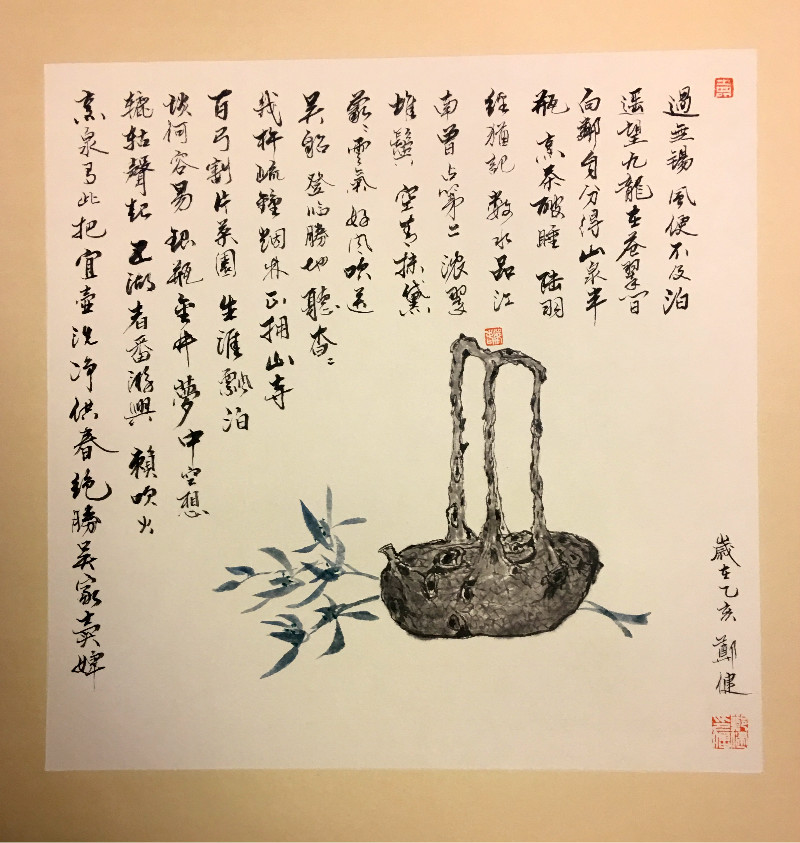 過無錫風便不及泊
遥望九龍在蒼翠間
向鄰舟分得山泉半
瓶烹茶破睡陸羽
經猶記數水品江
南曾占第二濃翠
堆鬟空青抹黛
雲氣好風吹送
吳船登臨勝地聽杳〻
幾杵疏鐘烟林正擁山寺
百弓割片菜園生涯飄泊
談何容易銀瓶金井夢中空想
轆轤聲起五湖者番游興賴吹火
烹泉為此把宜壺洗净供春絶勝吳家賣婢
歲在乙亥 鄭健